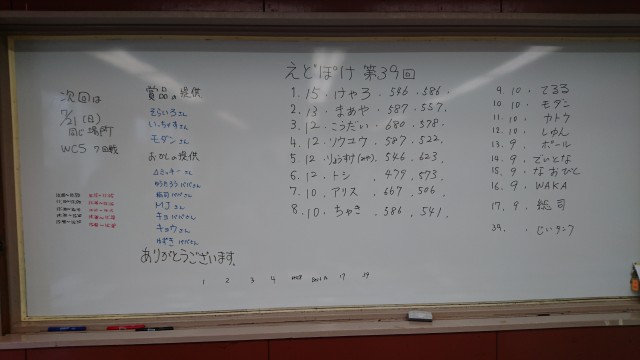 えどぽけ 第39回
次回は
7/21(日)
同じ場所
WCS 7回戦
賞品の提供
そらいろさん
いっちゃすさん
モダンさん
おかしの提供
ミッキーさん
ゆうたろうパパさん
総司パパさん
MJさん
キョウさん
ゆずきパパさん
ありがとうございます。
1. 15. けやろ. 546. 586.
2. 13. まぁや. 587. 557.
3. 12. こうだい. 680. 578.
4. 12. ソウユウ. 587. 522.
5 12. 546. 623.
6. 12. トシ. 479. 573.
7. 10. アリス. 667. 506.
8. 10. ちゃき. 586. 541.
9. 10. てるる
10. 10. モダン
11. 10. カトウ
12. 10. しゅん
13. 9. ポール
14. 9. でいとな
15. 9. なおひと
16. 9. WAKA
17. 9. 総司
39. . じいタンク
1 2 3 4 17 39